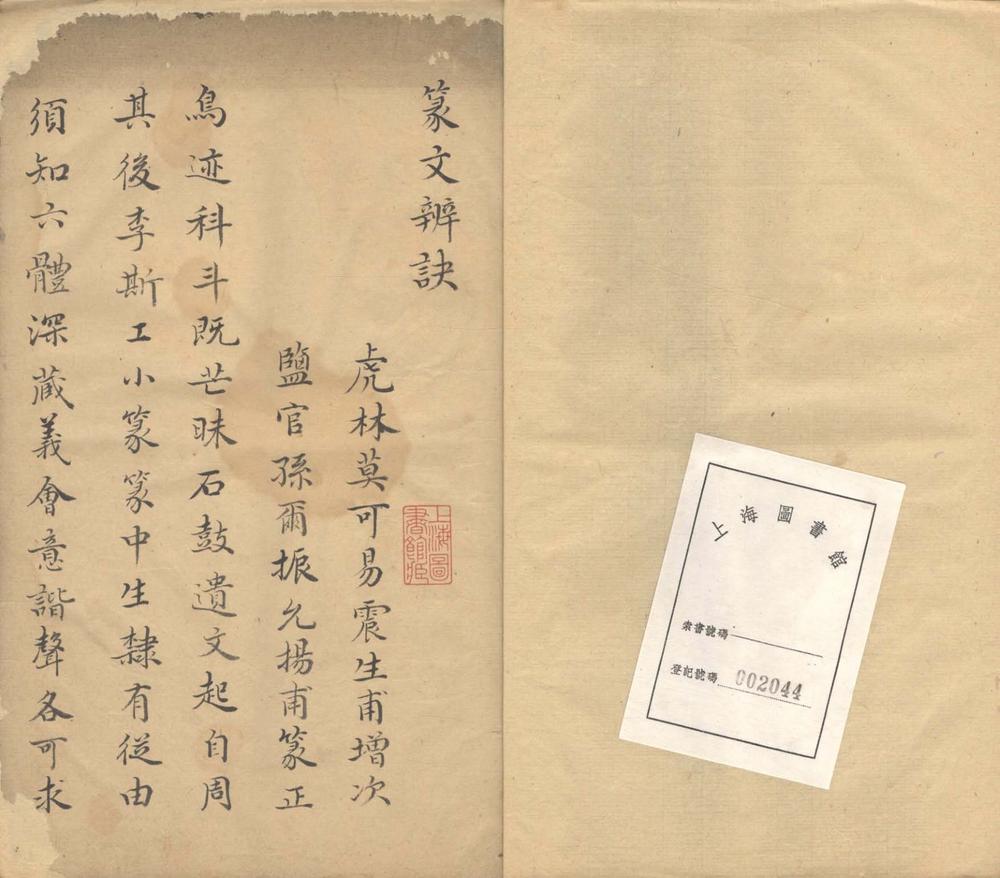 篆文辨訣
虎林莫可易震生甫增次
鹽官孫爾振允揚甫篆正
鳥迹科斗既芒昧石鼓遺文起自周
其後李斯工小篆篆中生隸有從由
須知六體深蔵義會意諧聲各可求
上海圖書館臧
上海圖書館
索書號碼
登記號碼 002044